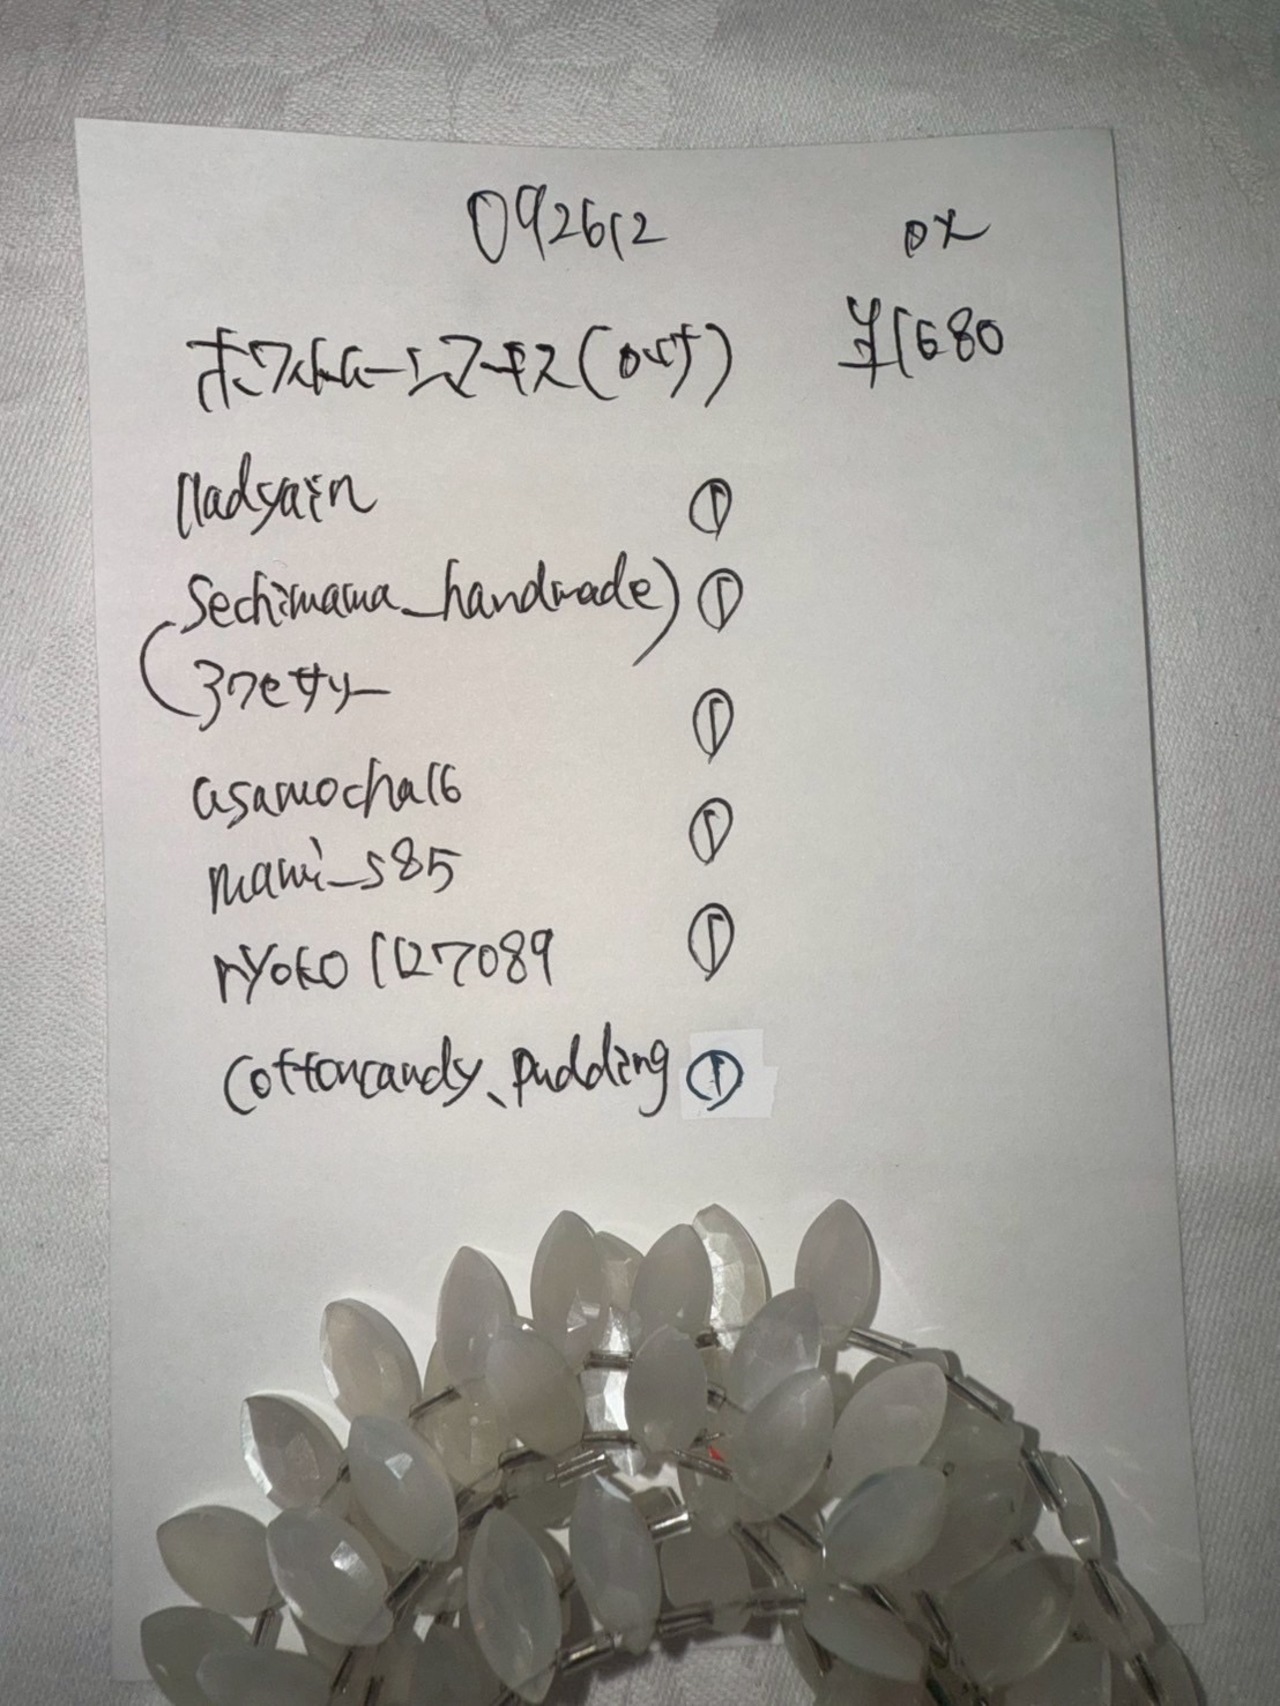 092612
ホワイトムーンマーキス(
¥1680
sechimama_handmade) ①
アクセサリー ①
asamocha16 ①
mami_s85 ①
ryoko1127089
cottoncandy、pudding ①